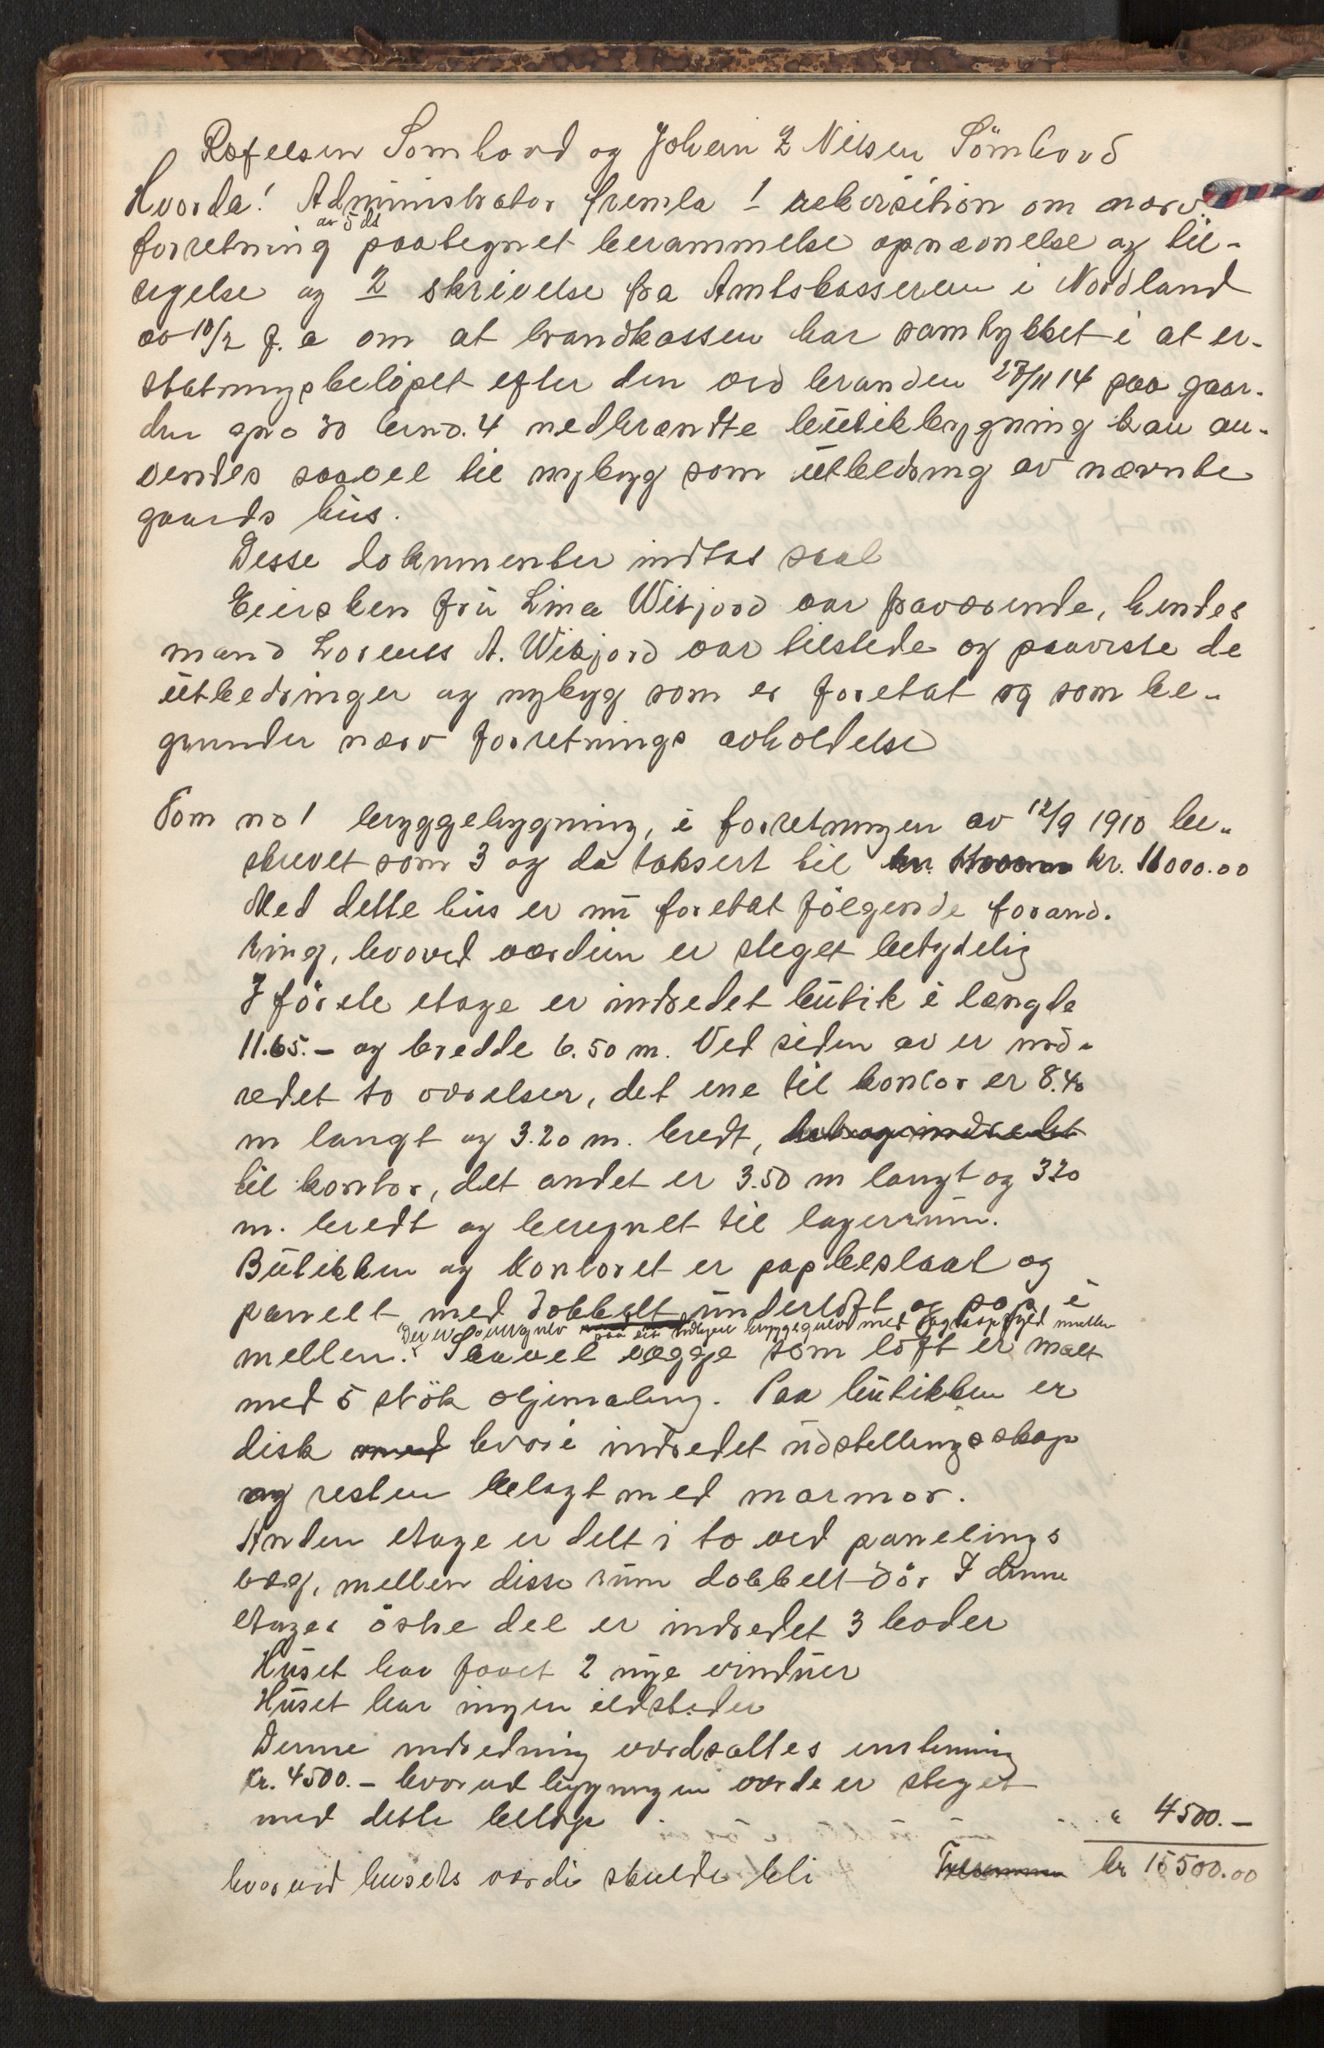 Rafelsen Somhovd og Johan Z Nilsen Sömhovd
Hvorda! Administrator fremla 1 rekvisition om nærv.
av 5 ds
forretning paategnet berammelse opnævnelse og til-
sigelse og 2 skrivelse fra Amtskasseren i Nordland
av 10/2 f. a om at brandkassen har samtykket i at er-
statningsbelöpet efter den ved branden 27/11 14 paa gaar-
den gno 30 brno. 4 nedbrændte butikbygning kan an-
vendes saavel til nybyg som utbedring av nævnte
gaards hus.
Desse dokumenter indtas saal
Eiersken fru Lina Wisjord var fraværende, hendes
mand Lorents A. Wisjord var tilstede og paaviste de
utbedringer og nybyg som er foretat og som be-
grunder nærv forretnings avholdelse
Som no 1 bryggebygning, i forretningen av 12/9 1910 be-
skrevet som 3 og da taksert til kr. 11000.00 kr. 11000.00
Med dette hus er nu foretat fölgende forand-
ring, hvorved værdien er steget betydelig
I förste etage er indredet butik i længde
11.65.- og bredde 6.50 m. Ved siden av er ind-
redet to værelser, det ene til kontor er 8.40
m langt og 3.20 m. bredt, det og indredet
til kontor, det andet er 3.50 m langt og 320
m. bredt og beregnet til lagerrum.
Butikken og Kontoret er papbeslaat og
panelt med dobbelt underloft og pap i
Der er overgulv paa det tidligere bryggegulv med pap fyld mellem
mellen. Saavel vægge som loft er malt
med 5 strök oljemaling. Paa butikken er
disk med hvori indredet udstellingsskap
og resten belagt med marmor.
Anden etage er delt i to ved panelings
væg, mellen disse rum dobbelt dör I denne
etages östre del er indredet 3 boder
Huset har faaet 2 nye vinduer
Huset har ingen ildsteder
Denne indredning værdsættes enstemmig
Kr. 4500.- hvorved bygningen værde er steget
med dette belöp " 4500.-
hvorved husets værdi skulde bli Tilsammen kr 15500.00